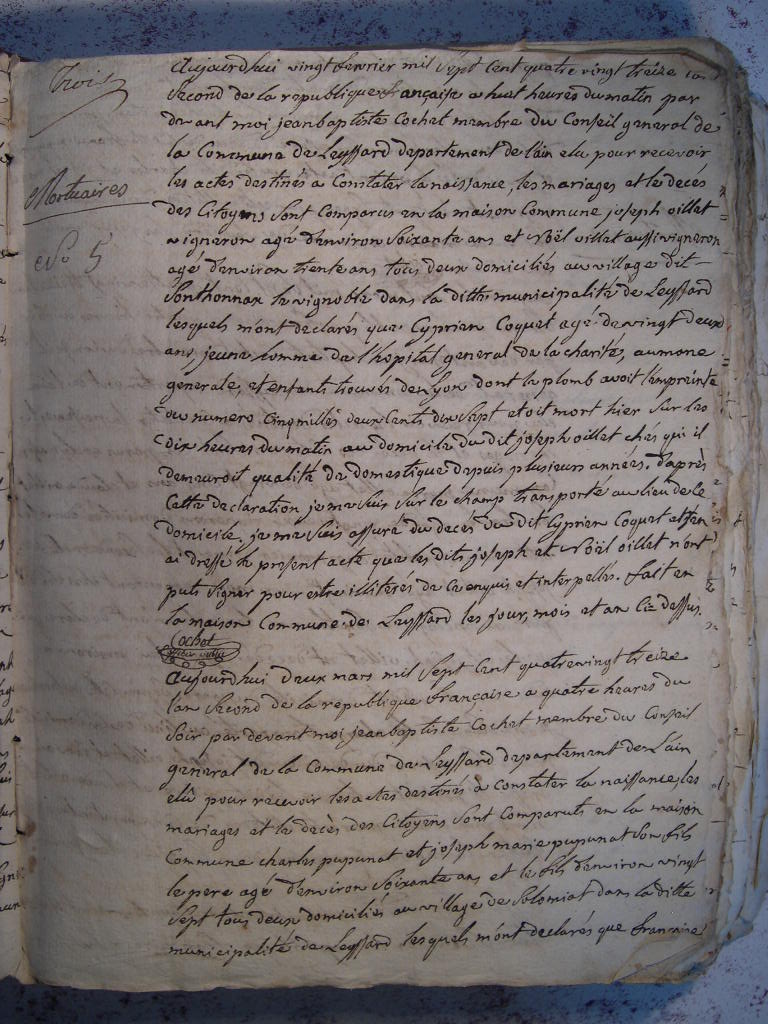 Trois
Mortuaires
No 5
aujourdhui vingt fevrier mil sept cent quatre vingt treize lan
second de la republique française a huit heures du matin par
devant moi jean baptiste Cochet membre du Conseil general de
la Commune de Leyssard departement de lain elu pour recevoir
les actes destinés a Constater la naissance, les mariages et le decés
des Citoyens sont comparus en la maison Commune joseph oillet
vigneron agé denviron soixante ans et Noël oillat aussi vigneron
agé denviron trente ans tous deux domiciliés au village dit
Sonthonnax le vignoble dans la ditte municipalité de Leyssard
lesquels m'ont declarés que Cyprien Coquet agé de vingt deux
ans, jeune homme de l'hopital general de la charité, aumone
generale, et enfants trouvés de Lyon dont le plomb avoit l'empreinte
du numero Cinq milles deux Cents dix sept etoit mort hier sur les
dix heures du matin au domicile du dit joseph oillet chés qui il
demeuroit qualité de domestique depuis plusieurs années. d'après
Cette declaration je me suis sur le champ transporté au lieu de ce
domicile, je me suis assuré du decés du dit Cyprien Coquet et j'en
ai dressé le present acte que les dits joseph et Noël oillet n'ont
puts signér pour estre illiterés de ce enquis et interpellés. fait en
la maison Commune de Leyssard les jour, mois et an Ci dessus.
Cochet
aujourdhui deux mars mil sept Cent quatrevingt treize
lan second de la republique française a quatre heures du
soir par devant moi jean baptiste Cochet membre du Conseil
general de la Commune de Leyssard departement de Lain
elû pour recevoir les actes destinés à constater la naissance, les
mariages et le decès des Citoyens sont comparuts en la maison
Commune charles pupunat et joseph marie pupunat son fils
le pere agé denviron soixante ans et le fils denviron vingt
sept tous deux domiciliés au village de Solomiat dans la ditte
municipalité de Leyssard lesquels m'ont declarés que francoise